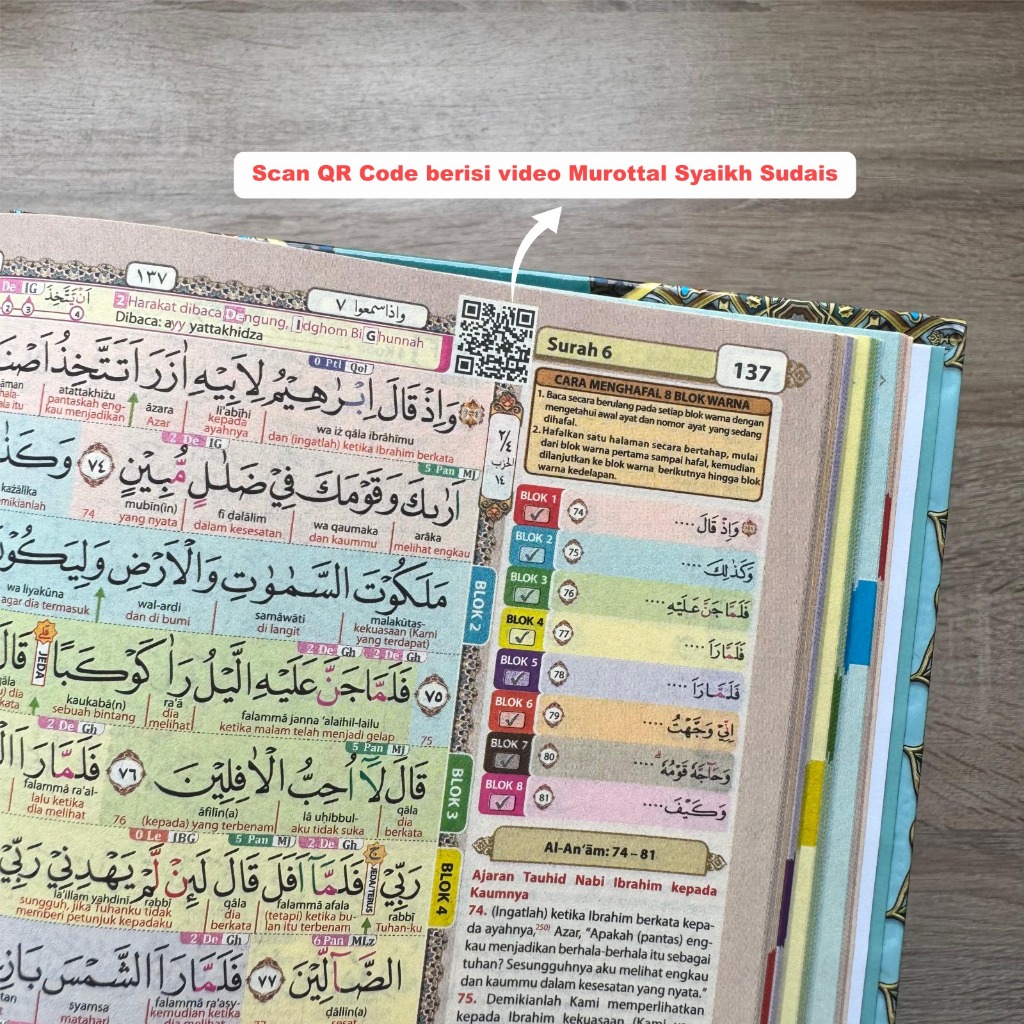 Scan QR Code berisi video Murottal Syaikh Sudais
١٣٧
وإذاسمعوا ٧
De IG
2 Harakat dibaca Dengung, Idghom Bi Ghunnah
Dibaca: ayy yattakhidza
0 Ptl Qol
وَاِذْ قَالَ اِبْرٰهِيْمُ لِاَبِيْهِ اٰزَرَ اَتَتَّخِذُ
wa iż qāla ibrāhīmu
dan (ingatlah) ketika Ibrahim berkata
li'abīhi
kepada ayahnya
āzara
Azar
atattakhiżu
pantaskah eng-
kau menjadikan
2 De IG
5 Pan Mj
اَرٰىكَ وَقَوْمَكَ فِيْ ضَلٰلٍ مُّبِيْنٍ ٧٤
arāka
melihat engkau
wa qaumaka
dan kaummu
fī ḍalālim
dalam kesesatan
mubīn(in)
yang nyata
74
każālika
مَلَكُوْتَ السَّمٰوٰتِ وَالْاَرْضِ
malakūtas-
kekuasaan (Kami
yang terdapat)
samāwāti
di langit
wal-ardi
dan di bumi
wa liyakūna
agar dia termasuk
BLOK 2
2 De Gh
2 De Gh
JEDA
٧٥ فَلَمَّا جَنَّ عَلَيْهِ الَّيْلُ رَاٰ كَوْكَبًا قَالَ
75
falammā janna 'alaihil-lailu
ketika malam telah menjadi gelap
ra'ā
dia
melihat
kaukabā(n)
sebuah bintang
2 De Gh
5 Pan Mj
قَالَ لَآ اُحِبُّ الْاٰفِلِيْنَ ٧٦ فَلَمَّا
qāla
dia
berkata
lā uḥibbul-
aku tidak suka
āfilīn(a)
(kepada) yang terbenam
76
falammā ra'al-
lalu ketika
dia melihat
BLOK 3
0 Le IBG
5 Pan Mj
2 De Gh
JEDA/TERUS
رَبِّيْ فَلَمَّآ اَفَلَ قَالَ لَىِٕنْ لَّمْ يَهْدِنِيْ رَبِّيْ
rabbī
Tuhan-ku
falammā afala
(tetapi) ketika bu-
lan itu terbenam
qāla
dia
berkata
la'illam yahdinī
rabbī
sungguh, jika Tuhanku tidak
memberi petunjuk kepadaku
BLOK 4
2 De Gh
6 Pan MLz
الضَّاۤلِّيْنَ ٧٧ فَلَمَّا رَاَ الشَّمْسَ
ḍāllīn(a)
77
falammā ra'asy-
kemudian ketika
syamsa
matahari
٢/٤
الحزب
١٤
Surah 6
137
CARA MENGHAFAL 8 BLOK WARNA
1. Baca secara berulang pada setiap blok warna dengan
mengetahui awal ayat dan nomor ayat yang sedang
dihafal.
2. Hafalkan satu halaman secara bertahap, mulai
dari blok warna pertama sampai hafal, kemudian
dilanjutkan ke blok warna berikutnya hingga blok
warna kedelapan.
BLOK 1 74 وَاِذْ قَالَ ....
BLOK 2 75 وَكَذٰلِكَ ....
BLOK 3 76 فَلَمَّا جَنَّ عَلَيْهِ ....
BLOK 4 77 فَلَمَّا رَاَ ....
BLOK 5 78 فَلَمَّا رَاَ ....
BLOK 6 79 اِنِّيْ وَجَّهْتُ ....
BLOK 7 80 وَحَاۤجَّهٗ قَوْمُهٗ ....
BLOK 8 81 وَكَيْفَ ....
Al-An'ām: 74 – 81
Ajaran Tauhid Nabi Ibrahim kepada
Kaumnya
74. (Ingatlah) ketika Ibrahim berkata kepa-
da ayahnya,²⁵⁰⁾ Azar, "Apakah (pantas) eng-
kau menjadikan berhala-berhala itu sebagai
tuhan? Sesungguhnya aku melihat engkau
dan kaummu dalam kesesatan yang nyata."
75. Demikianlah Kami memperlihatkan
kepada Ibrahim kekuasaan (Kami